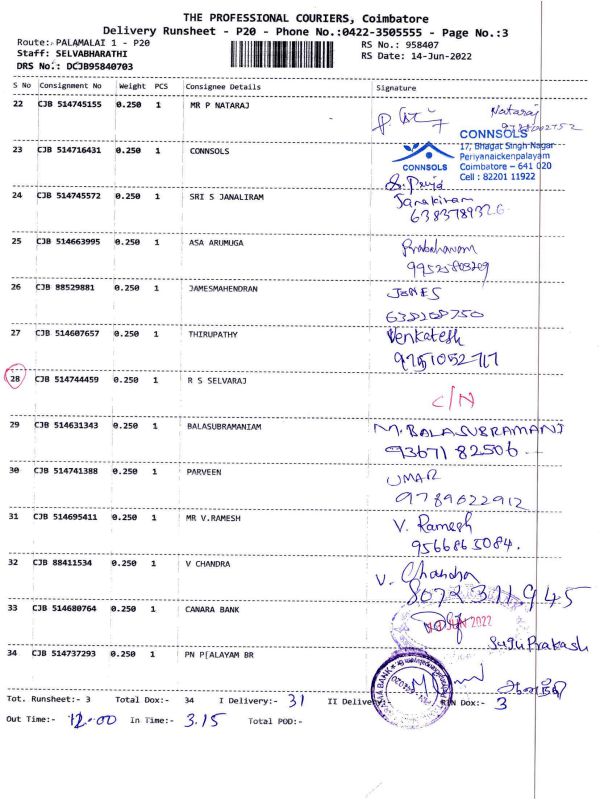 THE PROFESSIONAL COURIERS, Coimbatore
Delivery Runsheet - P20 - Phone No.:0422-3505555 - Page No.:3
Route: PALAMALAI 1 - P20
RS No.: 958407
Staff: SELVABHARATHI
RS Date: 14-Jun-2022
DRS No.: DCJB95840703
S No Consignment No Weight PCS Consignee Details Signature
22 CJB 514745155 0.250 1 MR P NATARAJ Nataraj
CONNSOLS
17, Bhagat Singh Nagar
Periyanaickenpalayam
Coimbatore – 641 020
Cell : 82201 11922
CONNSOLS
23 CJB 514716431 0.250 1 CONNSOLS
24 CJB 514745572 0.250 1 SRI S JANALIRAM Janakiram
6383789326
25 CJB 514663995 0.250 1 ASA ARUMUGA
26 CJB 88529881 0.250 1 JAMESMAHENDRAN
27 CJB 514607657 0.250 1 THIRUPATHY Venkatesh
28 CJB 514744459 0.250 1 R S SELVARAJ C/N
29 CJB 514631343 0.250 1 BALASUBRAMANIAM M. BALASUBRAMANI
93671 82506
30 CJB 514741388 0.250 1 PARVEEN UMAR
9789622912
31 CJB 514695411 0.250 1 MR V.RAMESH V. Ramesh
9566865084.
32 CJB 88411534 0.250 1 V CHANDRA V. Chandra
8072311945
33 CJB 514680764 0.250 1 CANARA BANK JUN 2022
Suju Prakash
34 CJB 514737293 0.250 1 PN P[ALAYAM BR
Tot. Runsheet:- 3 Total Dox:- 34 I Delivery:- 31 II Delivery:- RTN Dox:- 3
Out Time:- 12-00 In Time:- 3.15 Total POD:-